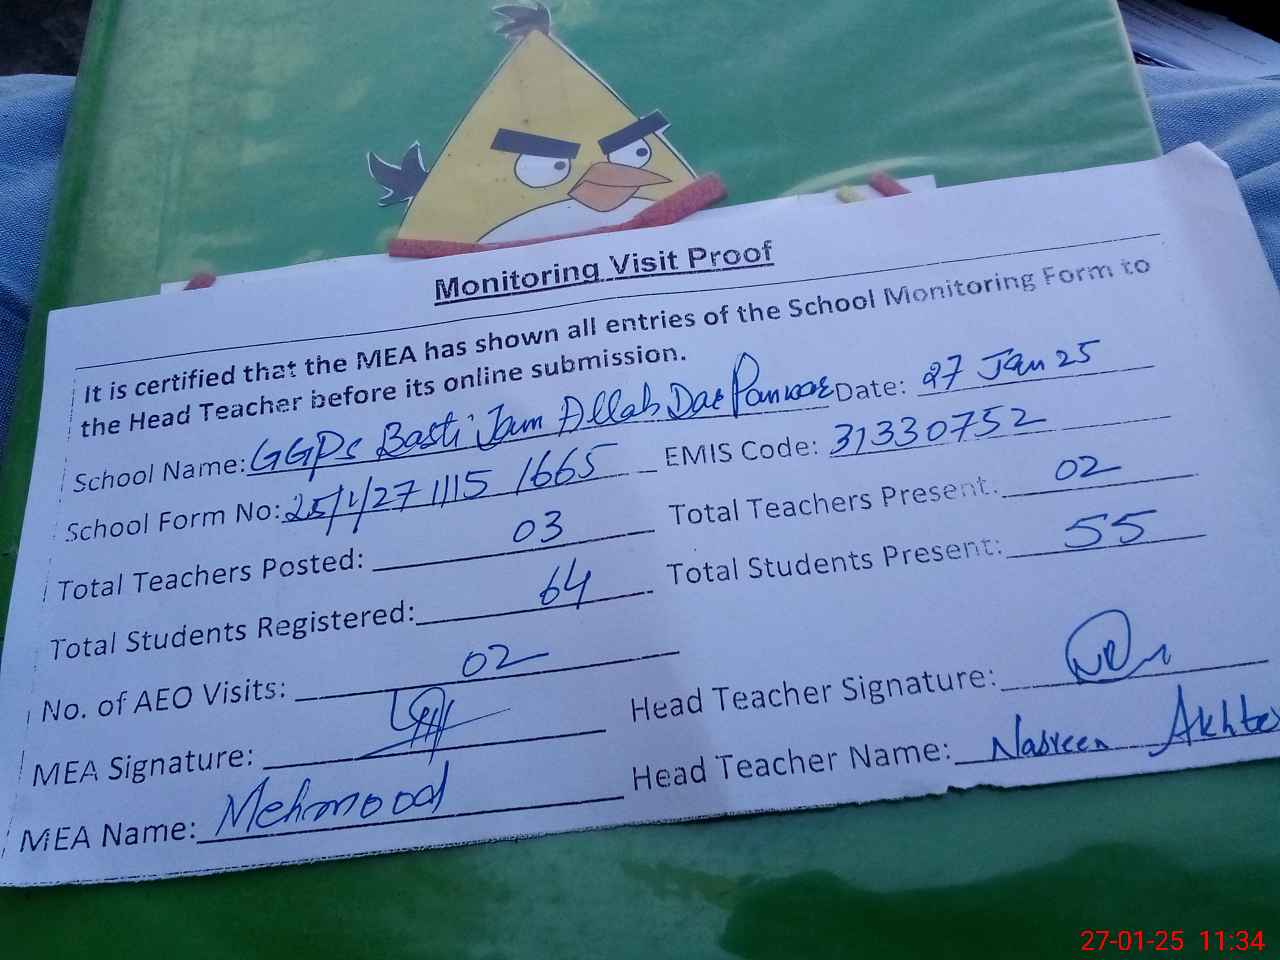 Monitoring Visit Proof
It is certified that the MEA has shown all entries of the School Monitoring Form to
the Head Teacher before its online submission.
School Name: GGPS Basti Jam Allah Dae Panwar Date: 27 Jan 25
School Form No: 25/1/27 1115 1665 EMIS Code: 31330752
Total Teachers Posted: 03 Total Teachers Present: 02
Total Students Registered: 64 Total Students Present: 55
No. of AEO Visits: 02
MEA Signature: Head Teacher Signature:
MEA Name: Mehmood Head Teacher Name: Nasreen Akhter
27-01-25 11:34